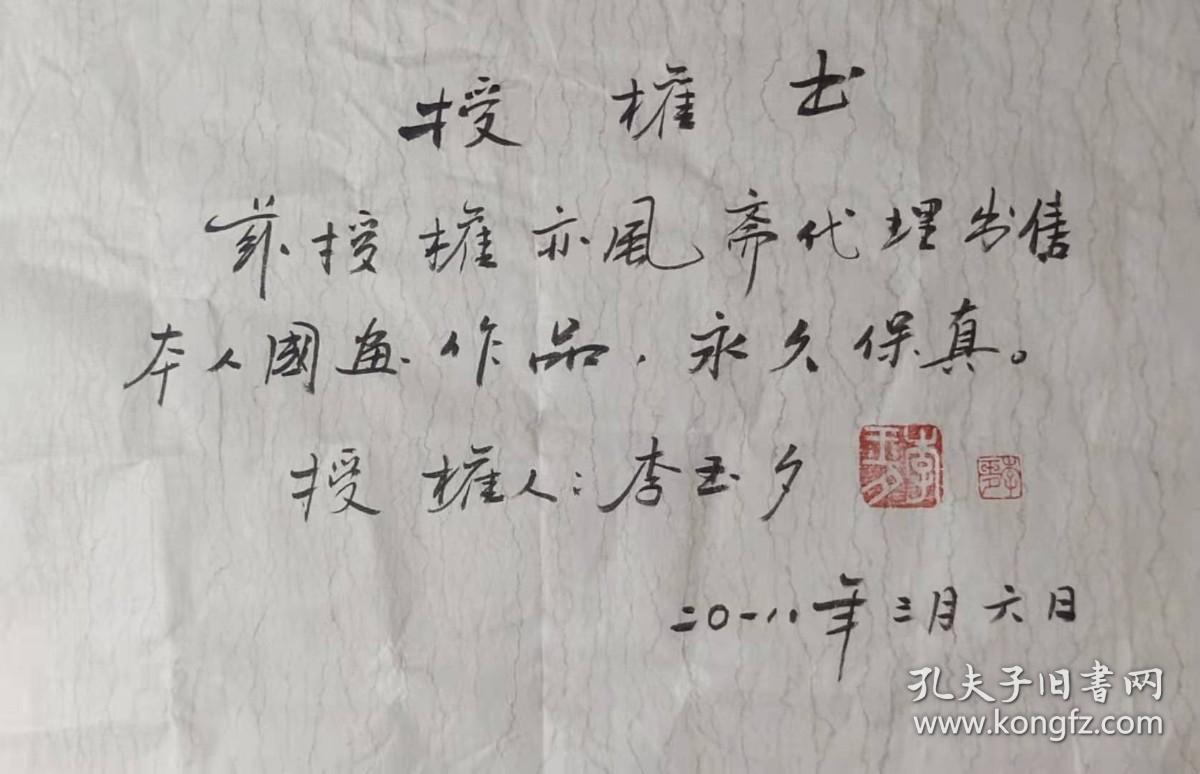 授權书
兹授權亦風斋代理出售
本人國画作品，永久保真。
授權人：李玉夕
二〇一八年三月六日
孔夫子旧書网
www.kongfz.com